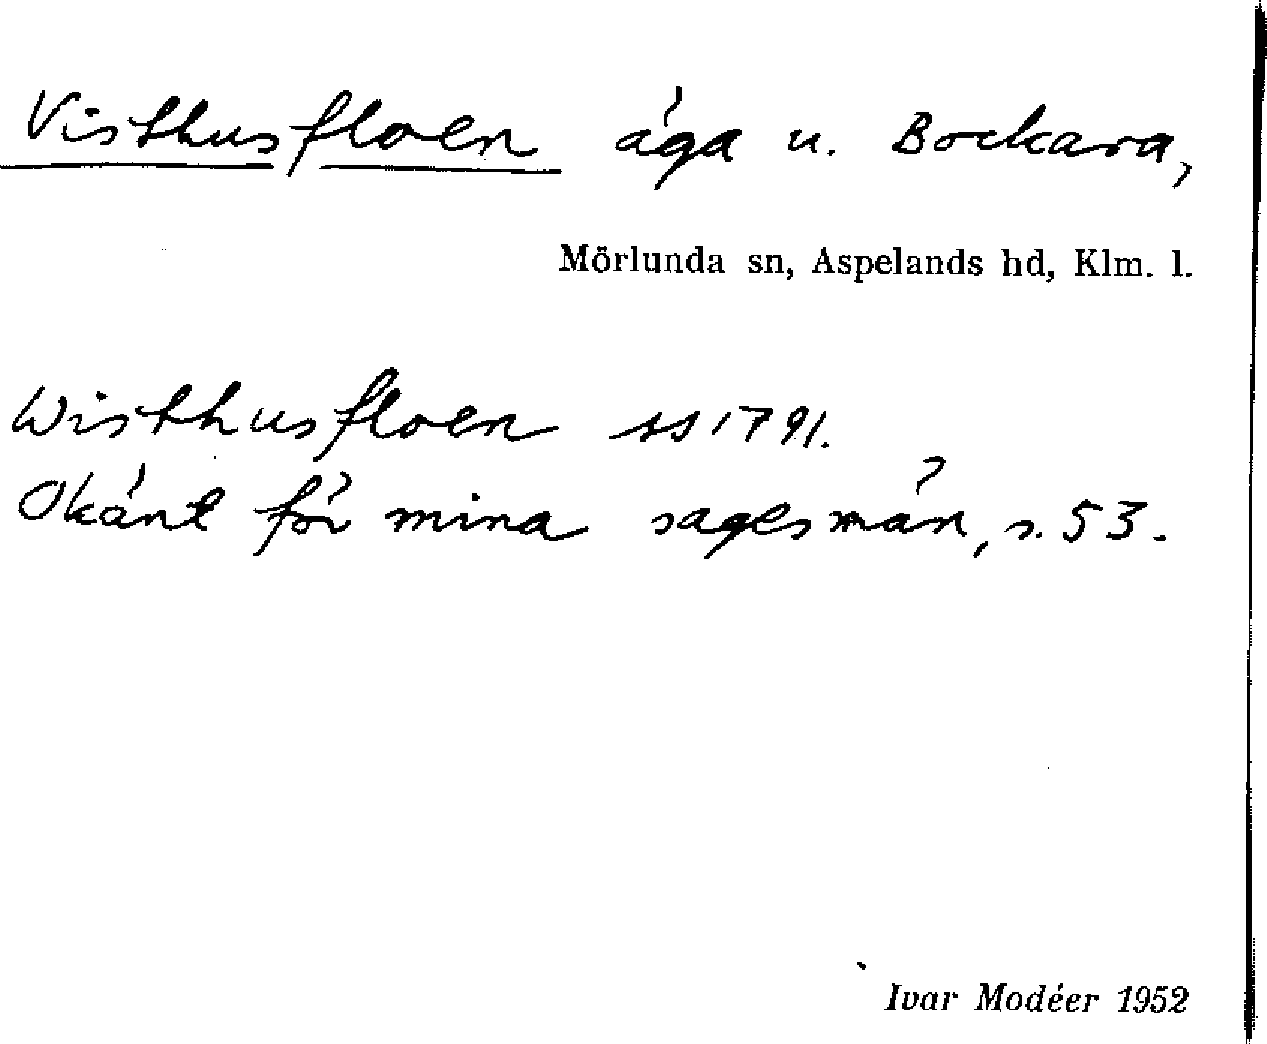 Visthusfloen äga u. Bockara,
Mörlunda sn, Aspelands hd, Klm. l.
Wisthusfloen ss 1791.
Okänt för mina sagesmän, s. 53.
Ivar Modéer 1952